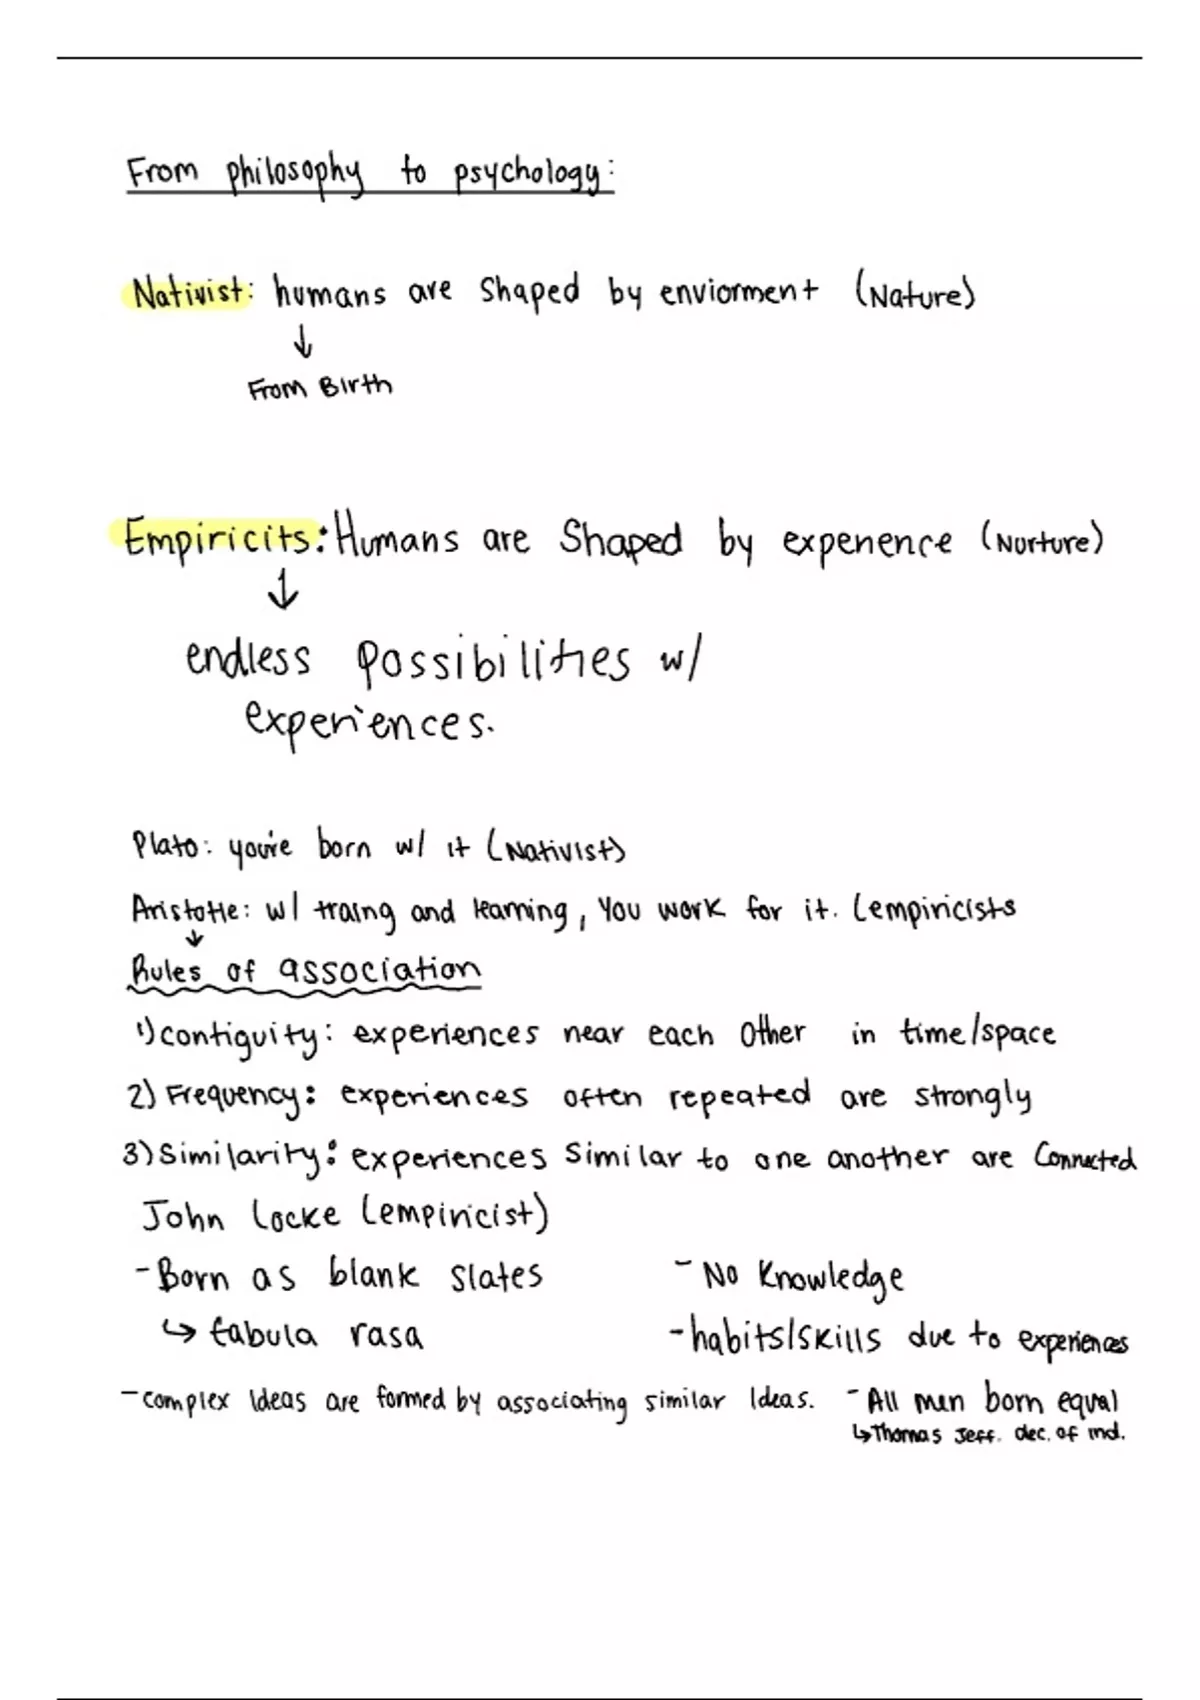 From philosophy to psychology:
Nativist: humans are shaped by enviorment (Nature)
↓
From Birth
Empiricits: Humans are Shaped by experience (Nurture)
↓
endless possibilities w/
experiences.
Plato: you're born w/ it (Nativist)
Aristotle: w/ traing and learning, You work for it. (empiricists
↓
Rules of association
1) contiguity: experiences near each other in time/space
2) Frequency: experiences often repeated are strongly
3) Similarity: experiences similar to one another are Connected
John Locke (empiricist)
- Born as blank slates - No Knowledge
↳ tabula rasa - habits/skills due to experiences
- complex Ideas are formed by associating similar Ideas. - All men born equal
↳ Thomas Jeff. dec. of ind.